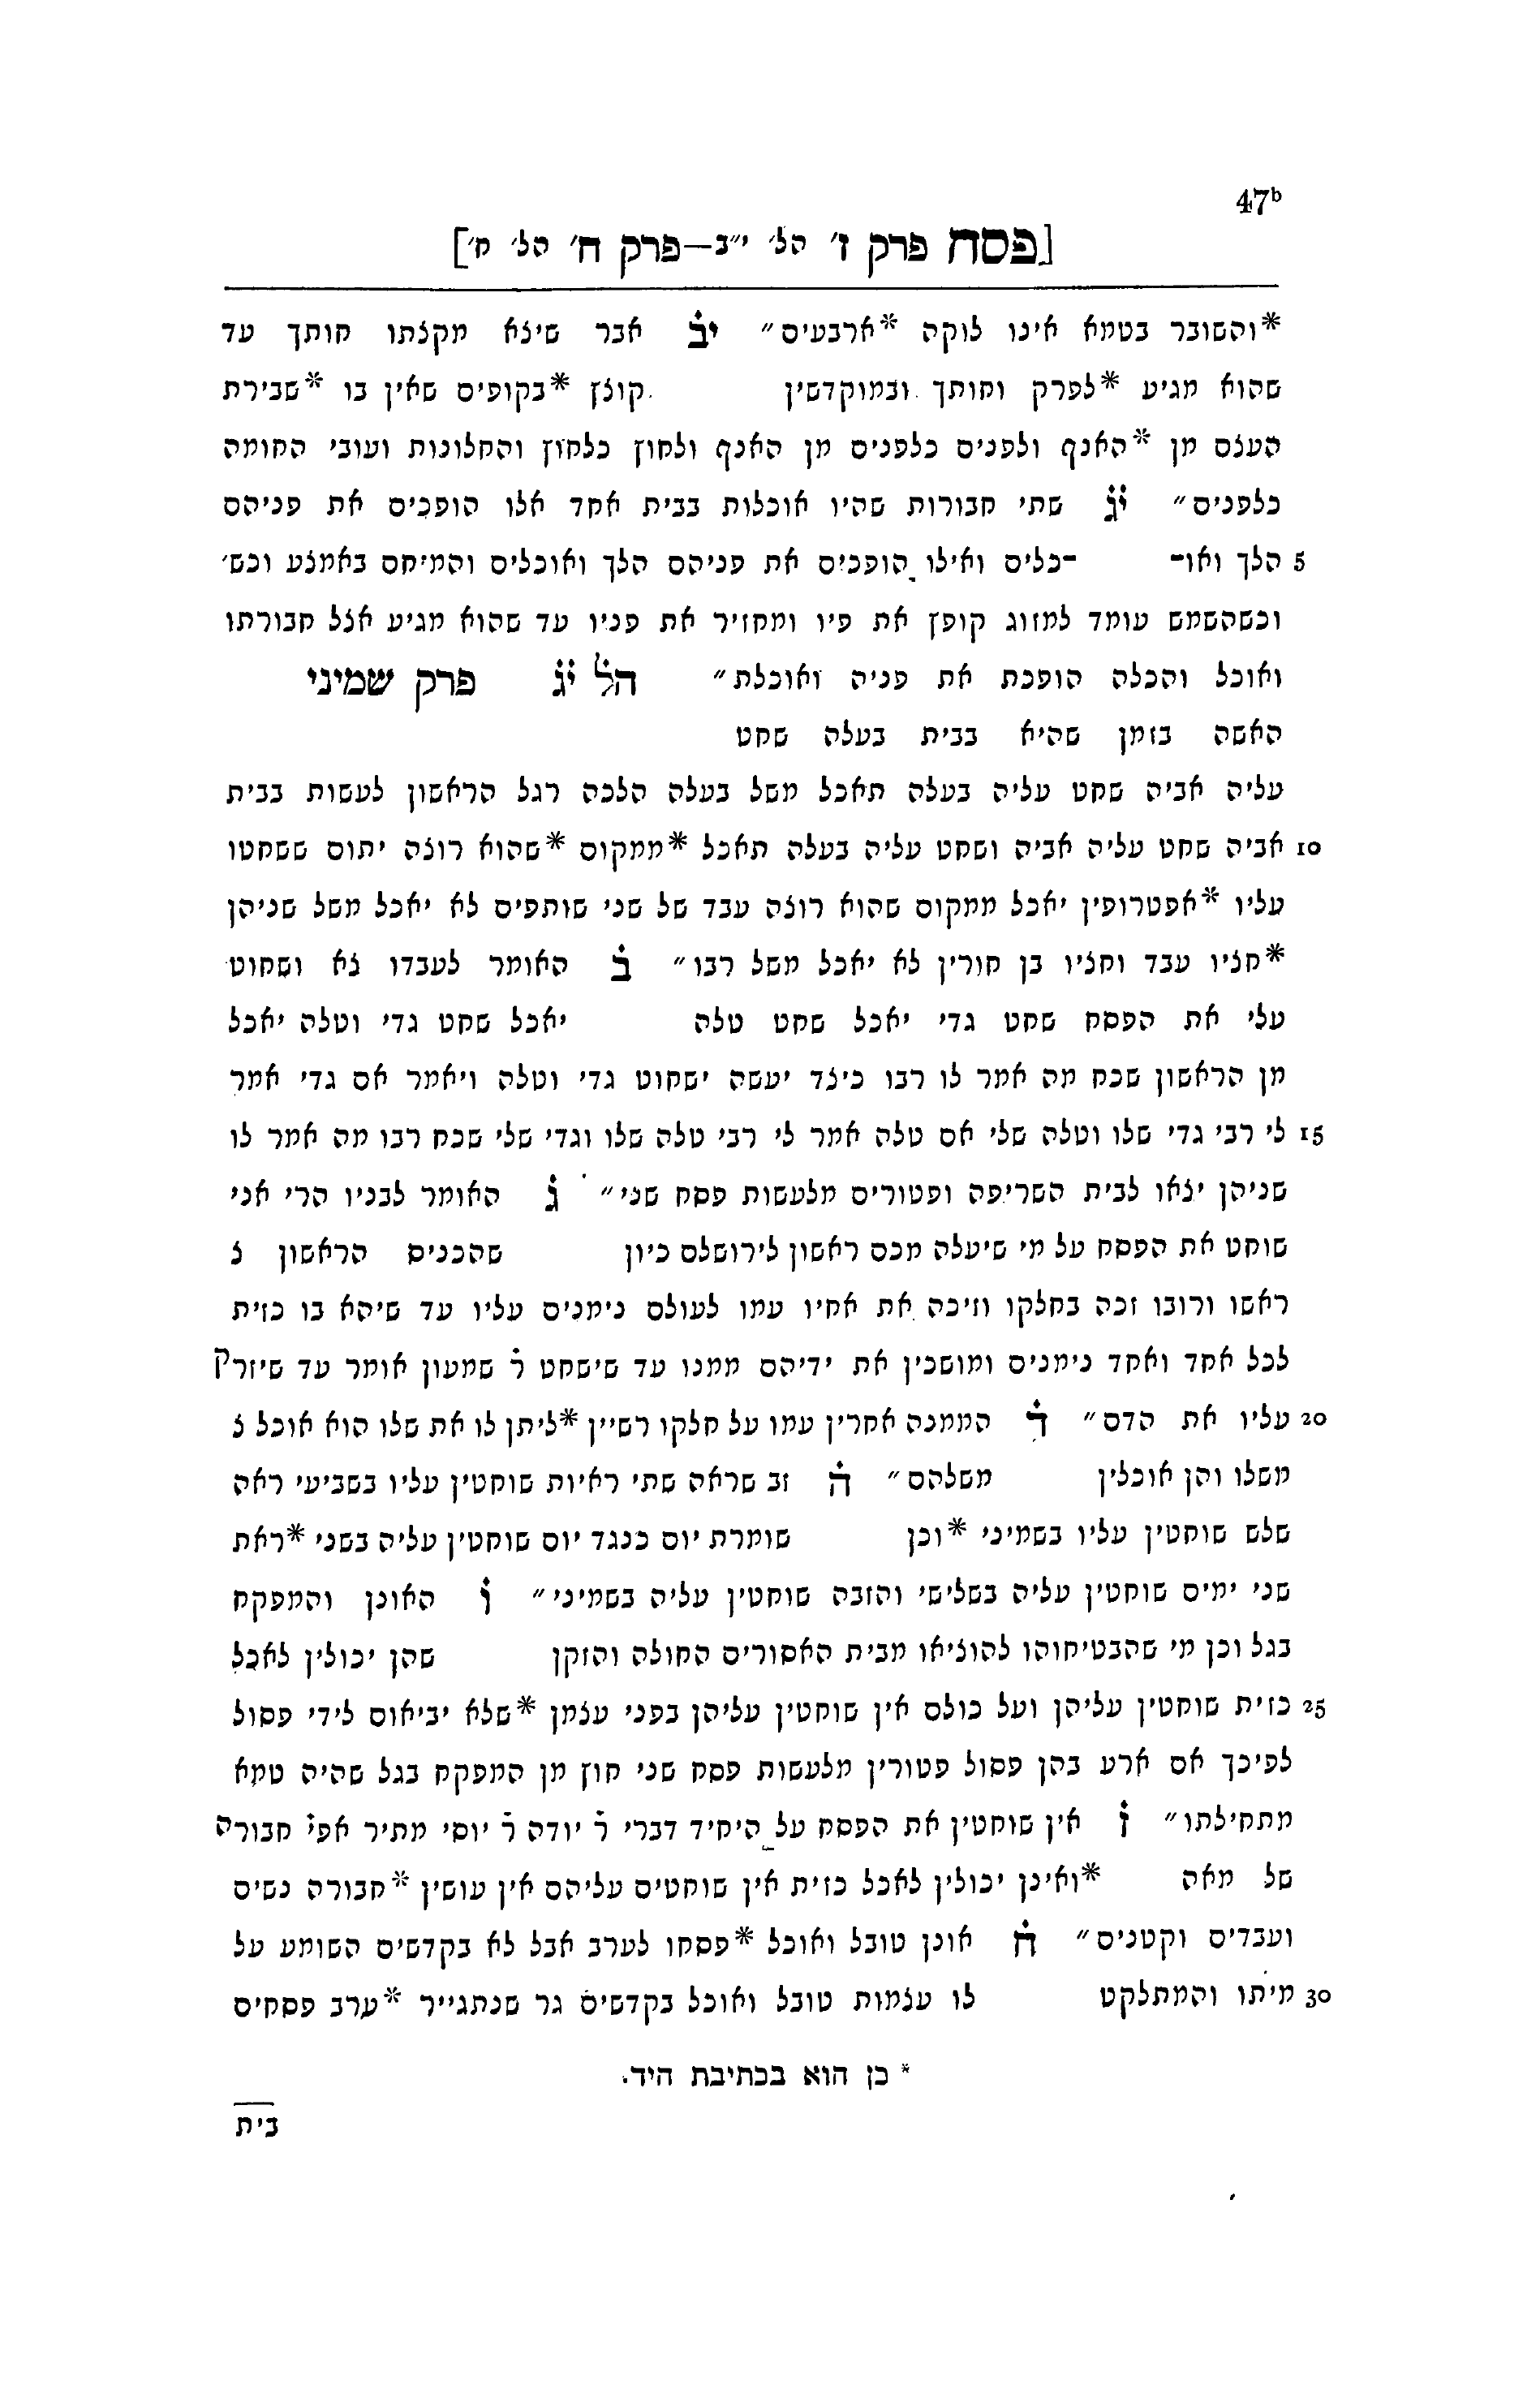 47b
[פסח פרק ז׳ הל׳ י״ב—פרק ח׳ הל׳ ח׳]
*והשובר בטמא אינו לוקה *ארבעים״ יב אבר שיצא מקצתו חותך עד
שהוא מגיע *לפרק וחותך ובמוקדשין קוצץ *בקופיס שאין בו *שבירת
העצם מן *האגף ולפנים כלפנים מן האגף ולחוץ כלחוץ והחלונות ועובי החומה
כלפנים״ יג שתי חבורות שהיו אוכלות בבית אחד אלו הופכים את פניהם
5 הלך ואו- -כלים ואילו הופכים את פניהם הלך ואוכלים והמיחם באמצע וכש׳
וכשהשמש עומד למזוג קופץ את פיו ומחזיר את פניו עד שהוא מגיע אצל חבורתו
ואוכל והכלה הופכת את פניה ואוכלת״ הל יג פרק שמיני
האשה בזמן שהיא בבית בעלה שחט
עליה אביה שחט עליה בעלה תאכל משל בעלה הלכה רגל הראשון לעשות בבית
10 אביה שחט עליה אביה ושחט עליה בעלה תאכל *ממקום *שהוא רוצה יתום ששחטו
עליו *אפטרופין יאכל ממקום שהוא רוצה עבד של שני שותפים לא יאכל משל שניהן
*חציו עבד וחציו בן חורין לא יאכל משל רבו״ ב האומר לעבדו צא ושחוט
עלי את הפסח שחט גדי יאכל שחט טלה יאכל שחט גדי וטלה יאכל
מן הראשון שכח מה אמר לו רבו כיצד יעשה ישחוט גדי וטלה ויאמר אם גדי אמר
15 לי רבי גדי שלו וטלה שלי אם טלה אמר לי רבי טלה שלו וגדי שלי שכח רבו מה אמר לו
שניהן יצאו לבית השריפה ופטורים מלעשות פסח שני״ ג האומר לבניו הרי אני
שוחט את הפסח על מי שיעלה מכם ראשון לירושלם כיון שהכניס הראשון צ
ראשו ורובו זכה בחלקו וזיכה את אחיו עמו לעולם נימנים עליו עד שיהא בו כזית
לכל אחד ואחד נימנים ומושכין את ידיהם ממנו עד שישחט ר שמעון אומר עד שיזרק
20 עליו את הדם״ ד הממנה אחרין עמו על חלקו רשיין *ליתן לו את שלו הוא אוכל צ
משלו והן אוכלין משלהם״ ה זב שראה שתי ראיות שוחטין עליו בשביעי ראה
שלש שוחטין עליו בשמיני *וכן שומרת יום כנגד יום שוחטין עליה בשני *ראת
שני ימים שוחטין עליה בשלישי והזבה שוחטין עליה בשמיני״ ו האונן והמפקח
בגל וכן מי שהבטיחוהו להוציאו מבית האסורים החולה והזקן שהן יכולין לאכל
25 כזית שוחטין עליהן ועל כולם אין שוחטין עליהן בפני עצמן *שלא יביאום לידי פסול
לפיכך אם ארע בהן פסול פטורין מלעשות פסח שני חוץ מן המפקח בגל שהיה טמא
מתחילתו״ ז אין שוחטין את הפסח על היחיד דברי ר יודה ר יוסי מתיר אפי חבורה
של מאה *ואינן יכולין לאכל כזית אין שוחטים עליהם אין עושין *חבורה נשים
ועבדים וקטנים״ ח אונן טובל ואוכל *פסחו לערב אבל לא בקדשים השומע על
30 מיתו והמתלקט לו עצמות טובל ואוכל בקדשים גר שנתגייר *ערב פסחים
* כן הוא בכתיבת היד.
בית